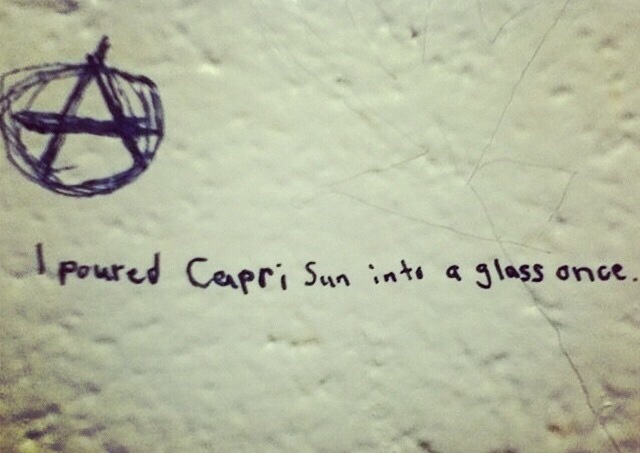 I poured Capri Sun into a glass once.